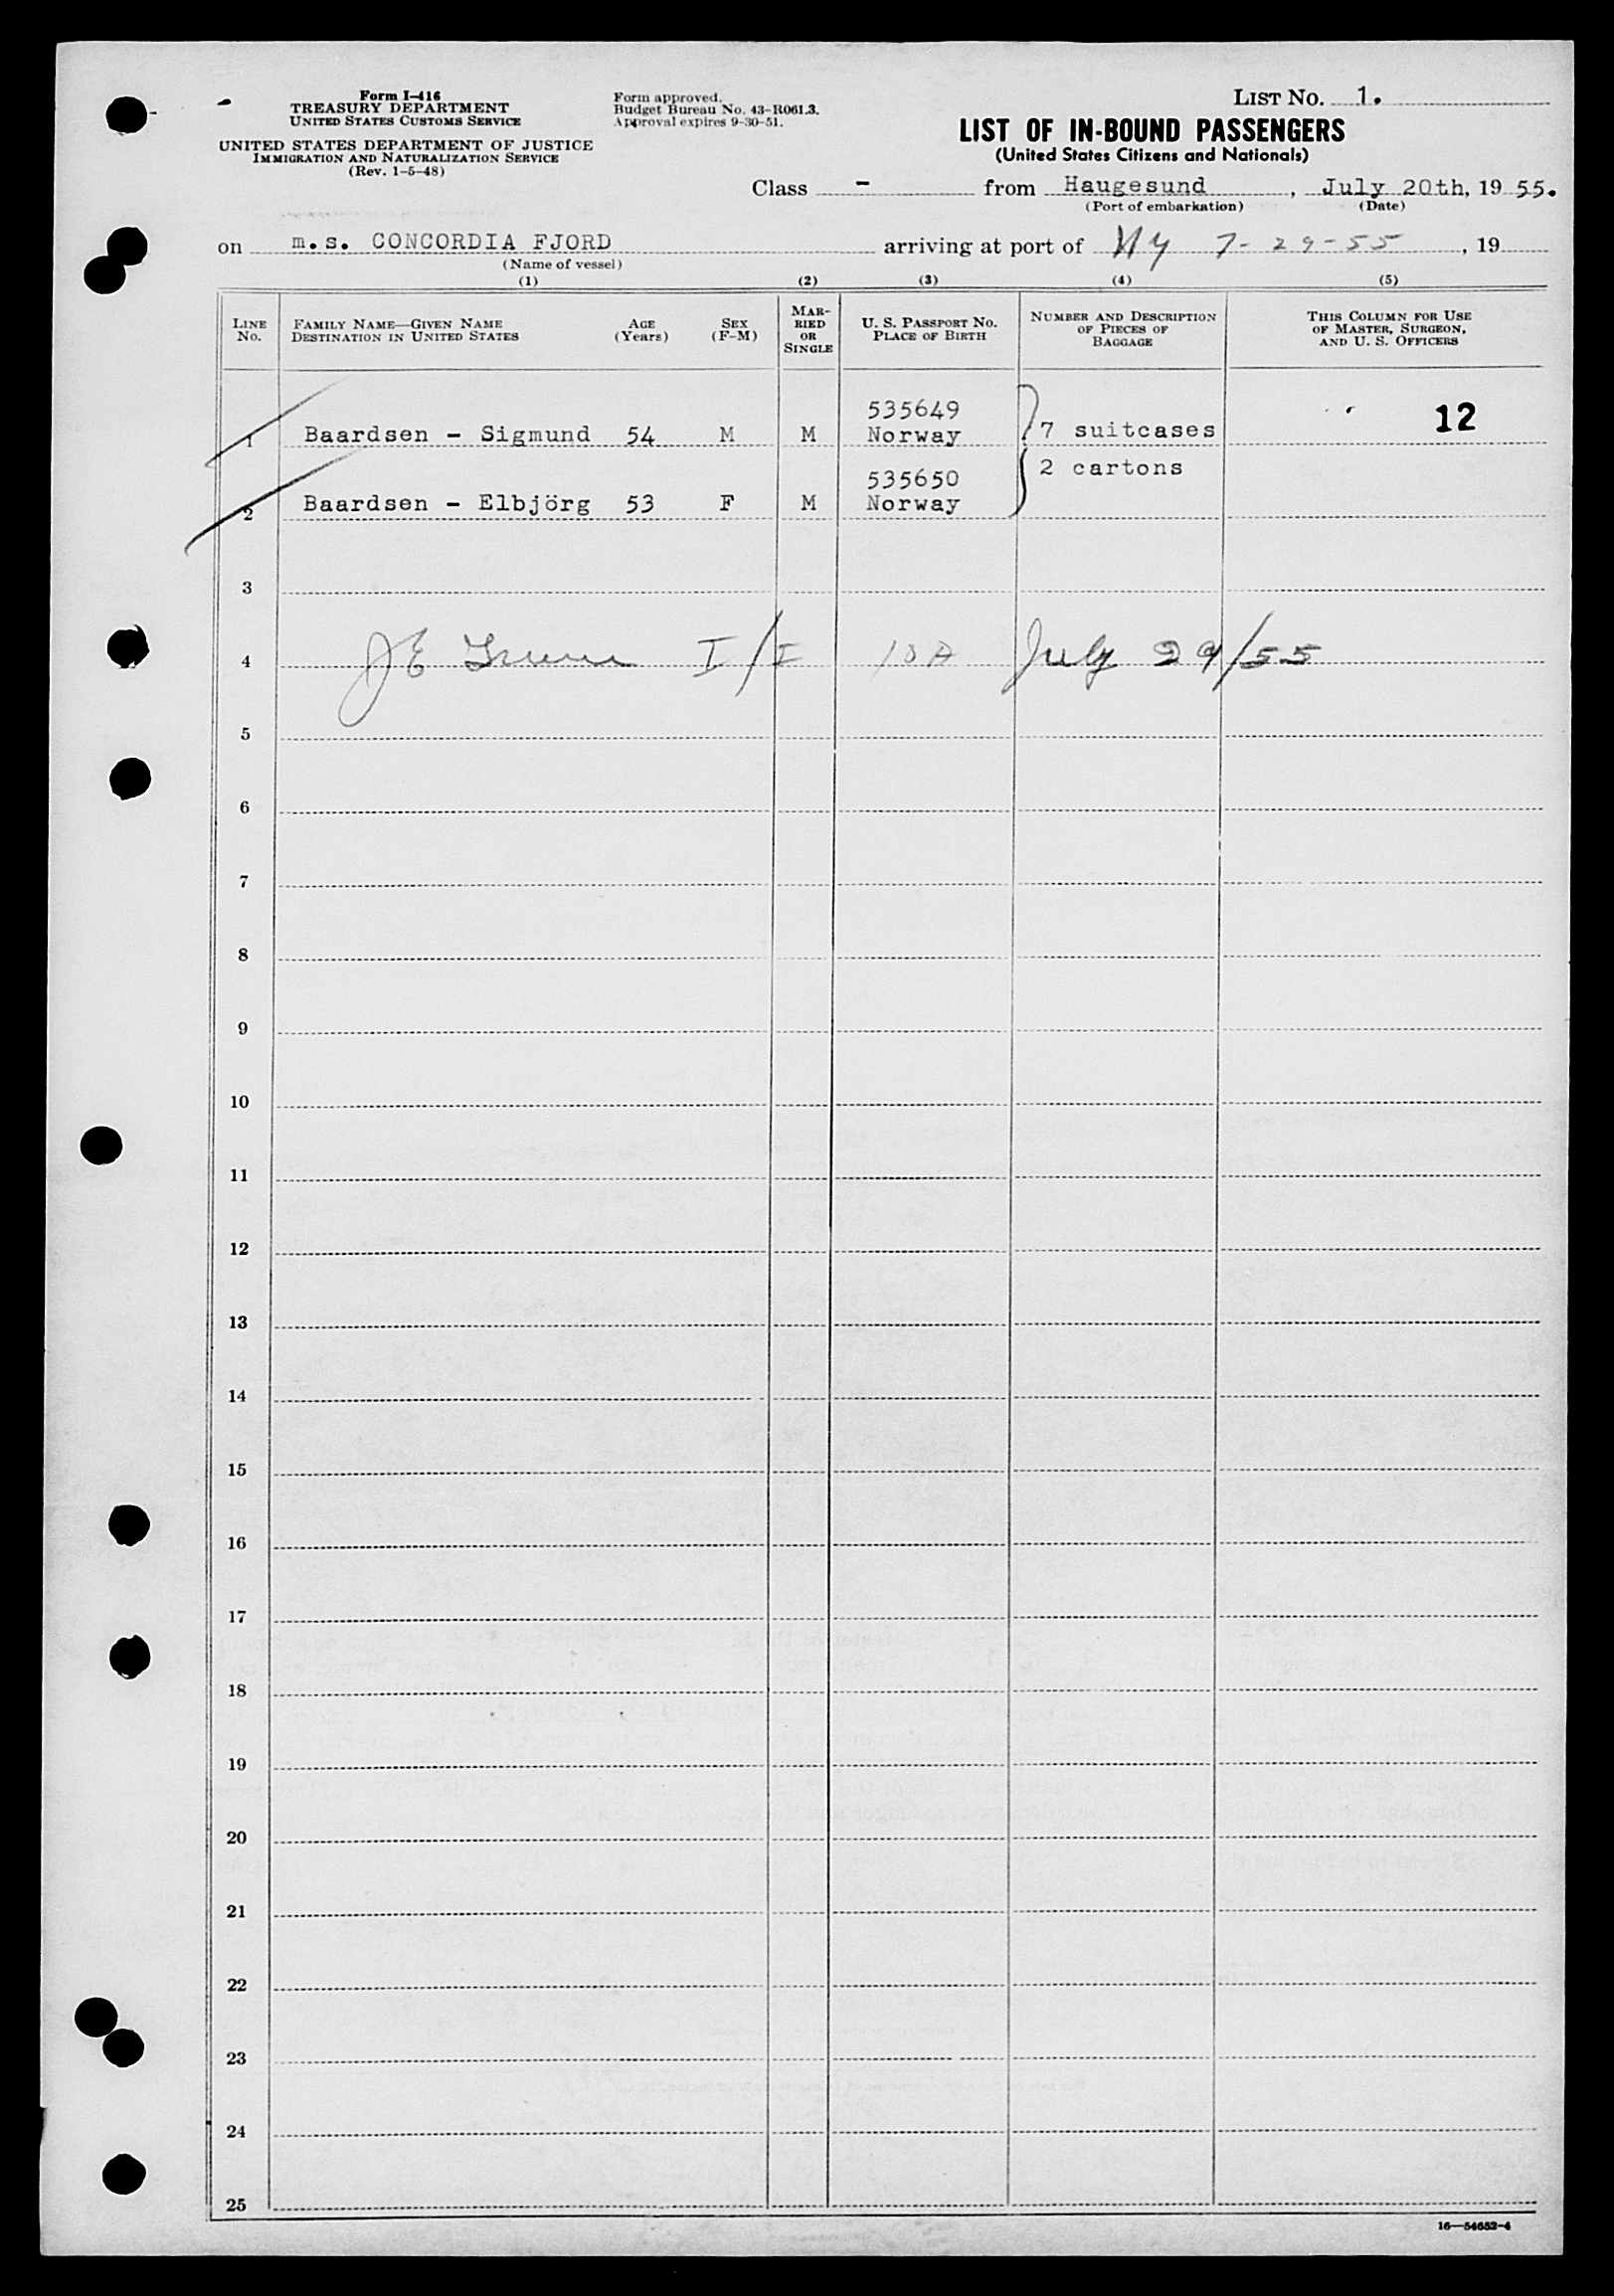 Form I-416
TREASURY DEPARTMENT
UNITED STATES CUSTOMS SERVICE
UNITED STATES DEPARTMENT OF JUSTICE
IMMIGRATION AND NATURALIZATION SERVICE
(Rev. 1-5-48)
Form approved.
Budget Bureau No. 43-R061.3.
Approval expires 9-30-51.
LIST NO. 1.
LIST OF IN-BOUND PASSENGERS
(United States Citizens and Nationals)
Class - from Haugesund, July 20th, 19 55.
(Port of embarkation) (Date)
on m.s. CONCORDIA FJORD arriving at port of NY 7-29-55, 19
(Name of vessel)
(1) (2) (3) (4) (5)
LINE NO.
FAMILY NAME—GIVEN NAME
DESTINATION IN UNITED STATES
AGE (Years)
SEX (F-M)
MARRIED OR SINGLE
U. S. PASSPORT NO.
PLACE OF BIRTH
NUMBER AND DESCRIPTION OF PIECES OF BAGGAGE
THIS COLUMN FOR USE OF MASTER, SURGEON, AND U. S. OFFICERS
535649
1 Baardsen - Sigmund 54 M M Norway 7 suitcases 12
535650 2 cartons
2 Baardsen - Elbjörg 53 F M Norway
3
4 JE I/I July 29/55
5
6
7
8
9
10
11
12
13
14
15
16
17
18
19
20
21
22
23
24
25
16—54652-4